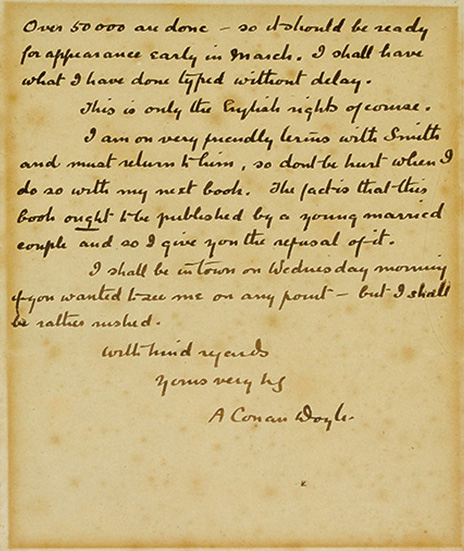 Over 50000 are done – so it should be ready
for appearance early in March. I shall have
what I have done typed without delay.
This is only the English rights of course.
I am on very friendly terms with Smith
and must return to him, so dont be hurt when I
do so with my next book. The fact is that this
book ought to be published by a young married
couple and so I give you the refusal of it.
I shall be in town on Wednesday morning
if you wanted to see me on any point – but I shall
be rather rushed.
With kind regards
Yours very
A Conan Doyle.